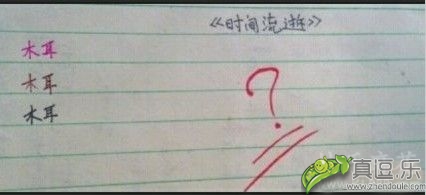 《时间流逝》
木耳
木耳
木耳
?
真逗.乐
www.zhendoule.com